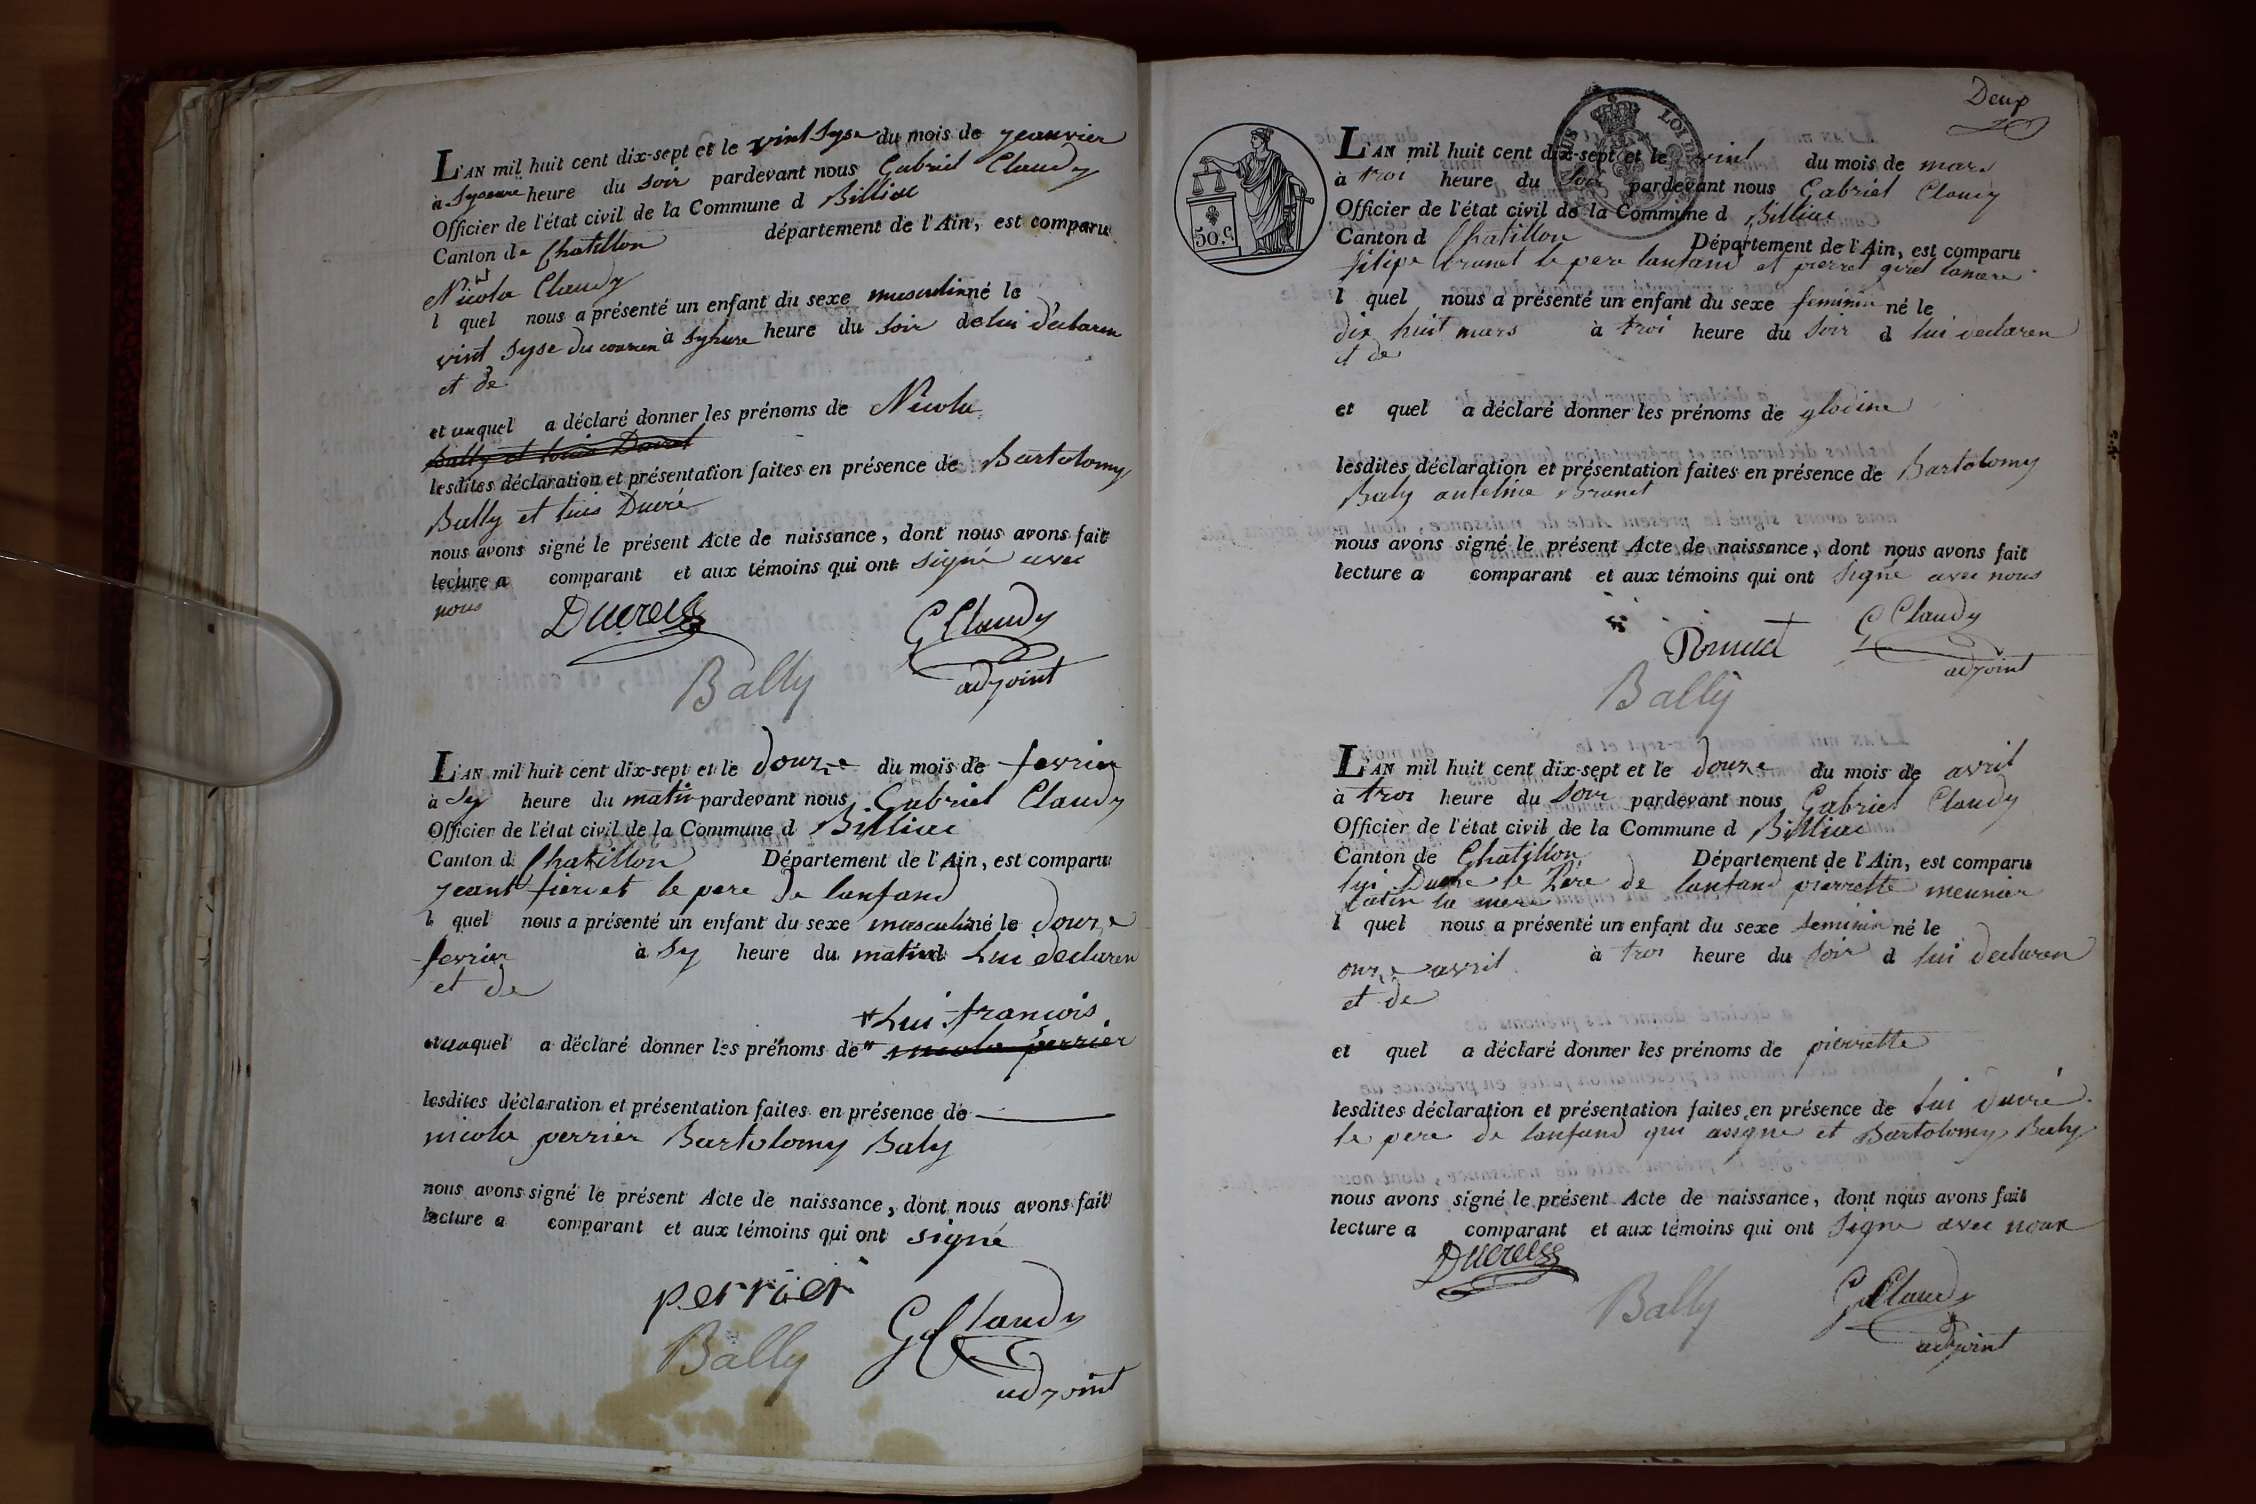 L'AN mil huit cent dix-sept et le vint syse du mois de jeanvier
à syseure heure du soir pardevant nous Gabriel Claudy
Officier de l'état civil de la Commune d Billiac
Canton de Chatillon département de l'Ain, est comparu
Nicola Claudy
l quel nous a présenté un enfant du sexe musculin né le
vint syse du couren à syhure heure du soir de lui déclaren
et de
et auquel a déclaré donner les prénoms de Nicola
Bally et luis
lesdites déclaration et présentation faites en présence de Bartolomy
Bally et luis Ducré
nous avons signé le présent Acte de naissance, dont nous avons fait
lecture a comparant et aux témoins qui ont signé avec
nous
Ducret
G Claudy
Bally
adjoint
L'AN mil huit cent dix-sept et le douze du mois de fevrier
à sy heure du matin pardevant nous Gabriel Claudy
Officier de l'état civil de la Commune d Billiac
Canton d Chatillon Département de l'Ain, est comparu
jeant le pere de lanfand
l quel nous a présenté un enfant du sexe masculin né le douze
fevrier à sy heure du matin d Lui declaren
et de
Lui francois
et auquel a déclaré donner les prénoms de nicola perrier
lesdites déclaration et présentation faites en présence de
nicola perrier Bartolomy Baly
nous avons signé le présent Acte de naissance, dont nous avons fait
lecture a comparant et aux témoins qui ont signé
perrier
G Claudy
Bally
adjoint
Deux
50.c
LOI
L'AN mil huit cent dix-sept et le vint du mois de mars
à troi heure du soir pardevant nous Gabriel Claudy
Officier de l'état civil de la Commune d Billiac
Canton d Chatillon Département de l'Ain, est comparu
filipe brunet le pere lanfand et pierret giret lamere
l quel nous a présenté un enfant du sexe feminin né le
dix huit mars à troi heure du soir d lui declaren
et de
et quel a déclaré donner les prénoms de glodine
lesdites déclaration et présentation faites en présence de Bartolomy
Baly antelme Brunet
nous avons signé le présent Acte de naissance, dont nous avons fait
lecture a comparant et aux témoins qui ont signé avec nous
G Claudy
adjoint
Bally
L'AN mil huit cent dix-sept et le douze du mois de avril
à troi heure du soir pardevant nous Gabriel Claudy
Officier de l'état civil de la Commune d Billiac
Canton de Chatillon Département de l'Ain, est comparu
lui le Père de lanfand pierrette meunier
catin la mere
l quel nous a présenté un enfant du sexe feminin né le
onze avril à troi heure du soir d lui declaren
et de
et quel a déclaré donner les prénoms de pierrette
lesdites déclaration et présentation faites en présence de lui ducré
le pere de lanfand qui asigne et Bartolomy Baly
nous avons signé le présent Acte de naissance, dont nous avons fait
lecture a comparant et aux témoins qui ont signe avec nous
Ducret
Bally
G Claudy
adjoint